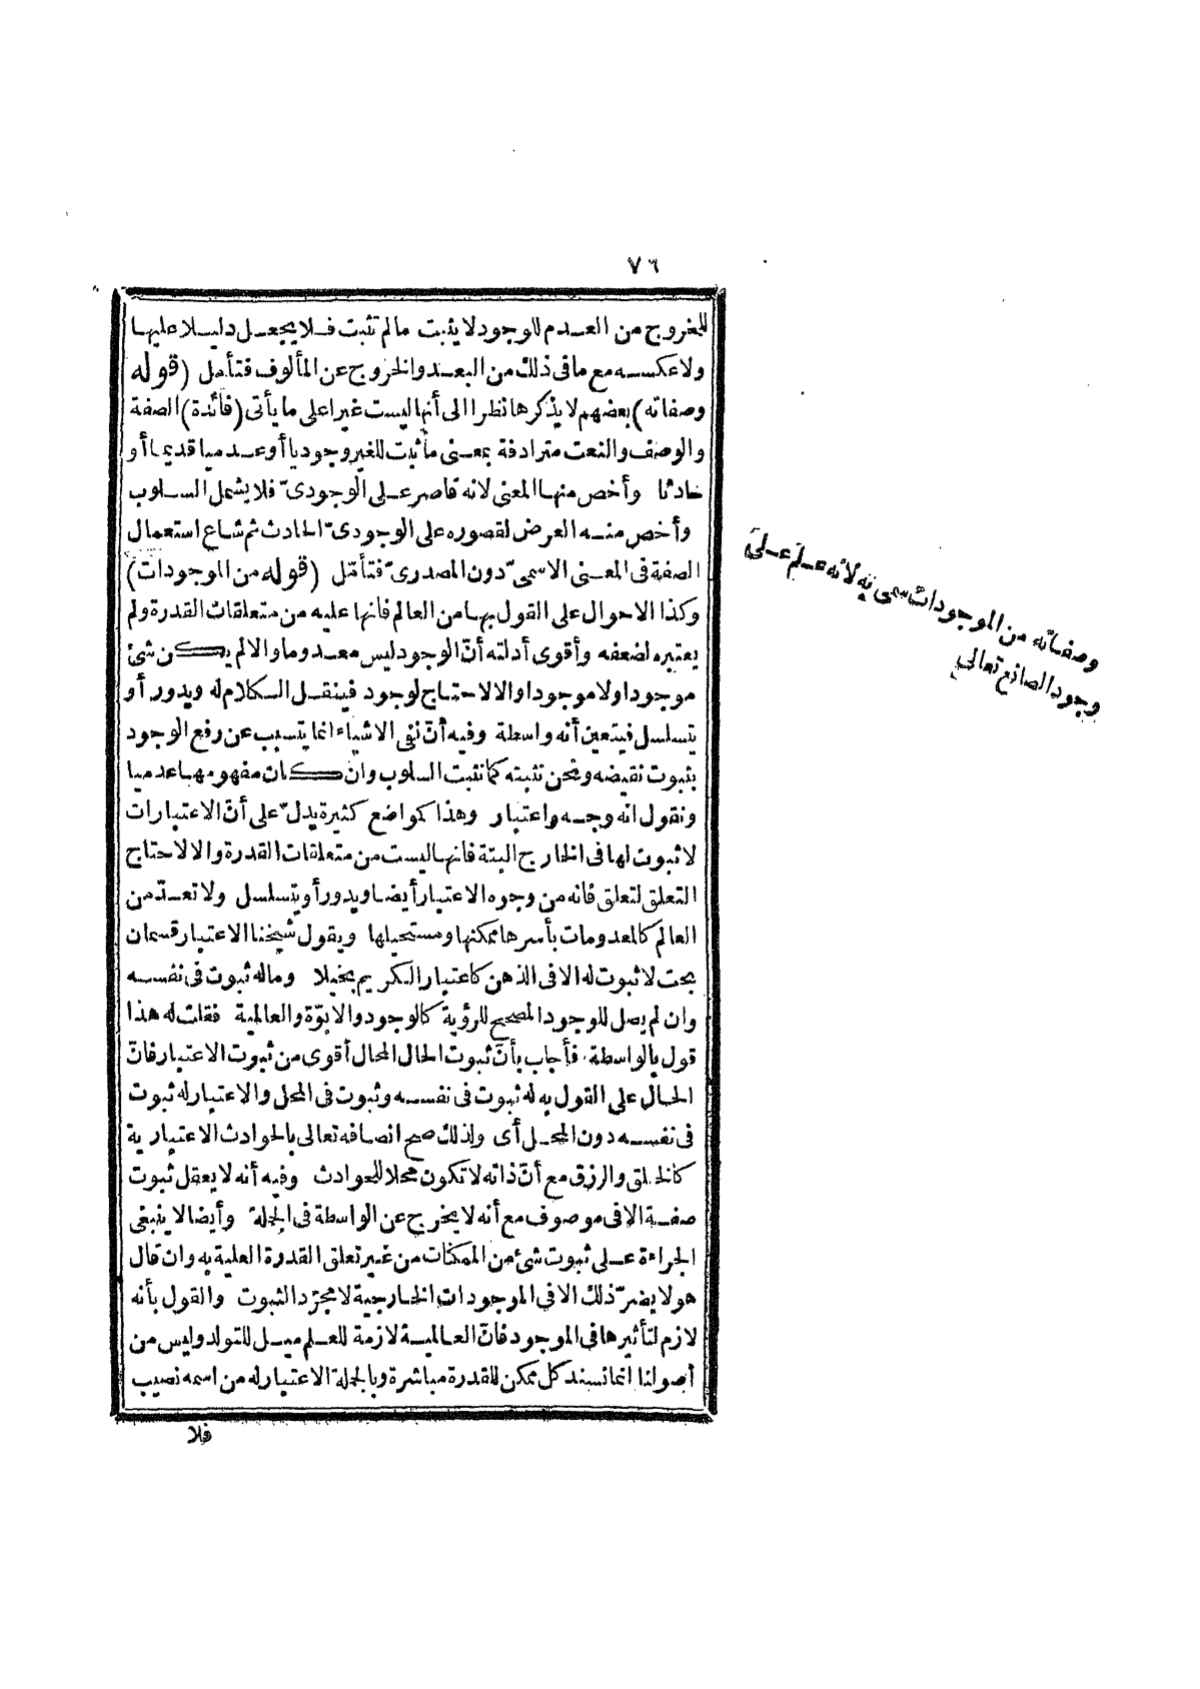 ٧٦
للخروج من العدم للوجود لا يثبت مالم تثبت فلا يجعل دليلا عليها
ولا عكسه مع ما فى ذلك من البعد والخروج عن المألوف فتأمل (قوله
وصفاته) بعضهم لا يذكرها نظرا الى أنها ليست غيرا على ما يأتى (فائدة) الصفة
والوصف والنعت مترادفة بمعنى ما ثبت للغير وجوديا أو عدميا قديما أو
حادثا وأخص منها المعنى لانه قاصر على الوجودىّ فلا يشمل السلوب
وأخص منه العرض لقصوره على الوجودىّ الحادث ثم شاع استعمال
الصفة فى المعنى الاسمىّ دون المصدرىّ فتأمّل (قوله من الموجودات)
وكذا الاحوال على القول بها من العالم فانها عليه من متعلقات القدرة ولم
يعتبره لضعفه وأقوى أدلته أنّ الوجود ليس معدوما والا لم يكن شئ
موجودا ولا موجودا والا لاحتاج لوجود فينقل الكلام له ويدور أو
يتسلسل فيتعين أنه واسطة وفيه أنّ نفى الاشياء انما يتسبب عن رفع الوجود
بثبوت نقيضه ونحن نثبته كما نثبت السلوب وان كان مفهومها عدميا
ونقول انه وجه واعتبار وهذا كمواضع كثيرة يدلّ على أنّ الاعتبارات
لا ثبوت لها فى الخارج البتة فانها ليست من متعلقات القدرة والا لاحتاج
التعلق لتعلق فانه من وجوه الاعتبار أيضا ويدور أو يتسلسل ولا تعدّ من
العالم كالمعدومات بأسرها ممكنها ومستحيلها ويقول شيخنا الاعتبار قسمان
بحت لا ثبوت له الا فى الذهن كاعتبار الكريم بخيلا وماله ثبوت فى نفسه
وان لم يصل للوجود المصحح للرؤية كالوجود والابوّة والعالمية فقلت له هذا
قول بالواسطة فأجاب بأنّ ثبوت الحال المحال أقوى من ثبوت الاعتبار فانّ
الحال على القول به له ثبوت فى نفسه وثبوت فى المحل والاعتبار له ثبوت
فى نفسه دون المحل أى ولذلك صح اتصافه تعالى بالحوادث الاعتبارية
كالخلق والرزق مع أنّ ذاته لا تكون محلا للحوادث وفيه أنه لا يعقل ثبوت
صفة الا فى موصوف مع أنه لا يخرج عن الواسطة فى الجملة وأيضا لا ينبغى
الجراءة على ثبوت شئ من الممكنات من غير تعلق القدرة العلية به وان قال
هو لا يضرّ ذلك الا فى الموجودات الخارجية لا مجرّد الثبوت والقول بأنه
لازم لتأثيرها فى الموجود فانّ العالمية لازمة للعلم ميل للتولد وليس من
أصولنا انما نسند كل ممكن للقدرة مباشرة وبالجملة الاعتبار له من اسمه نصيب
فلا
وصفاته من الموجودات سمى به لانه علم على
وجود الصانع تعالى